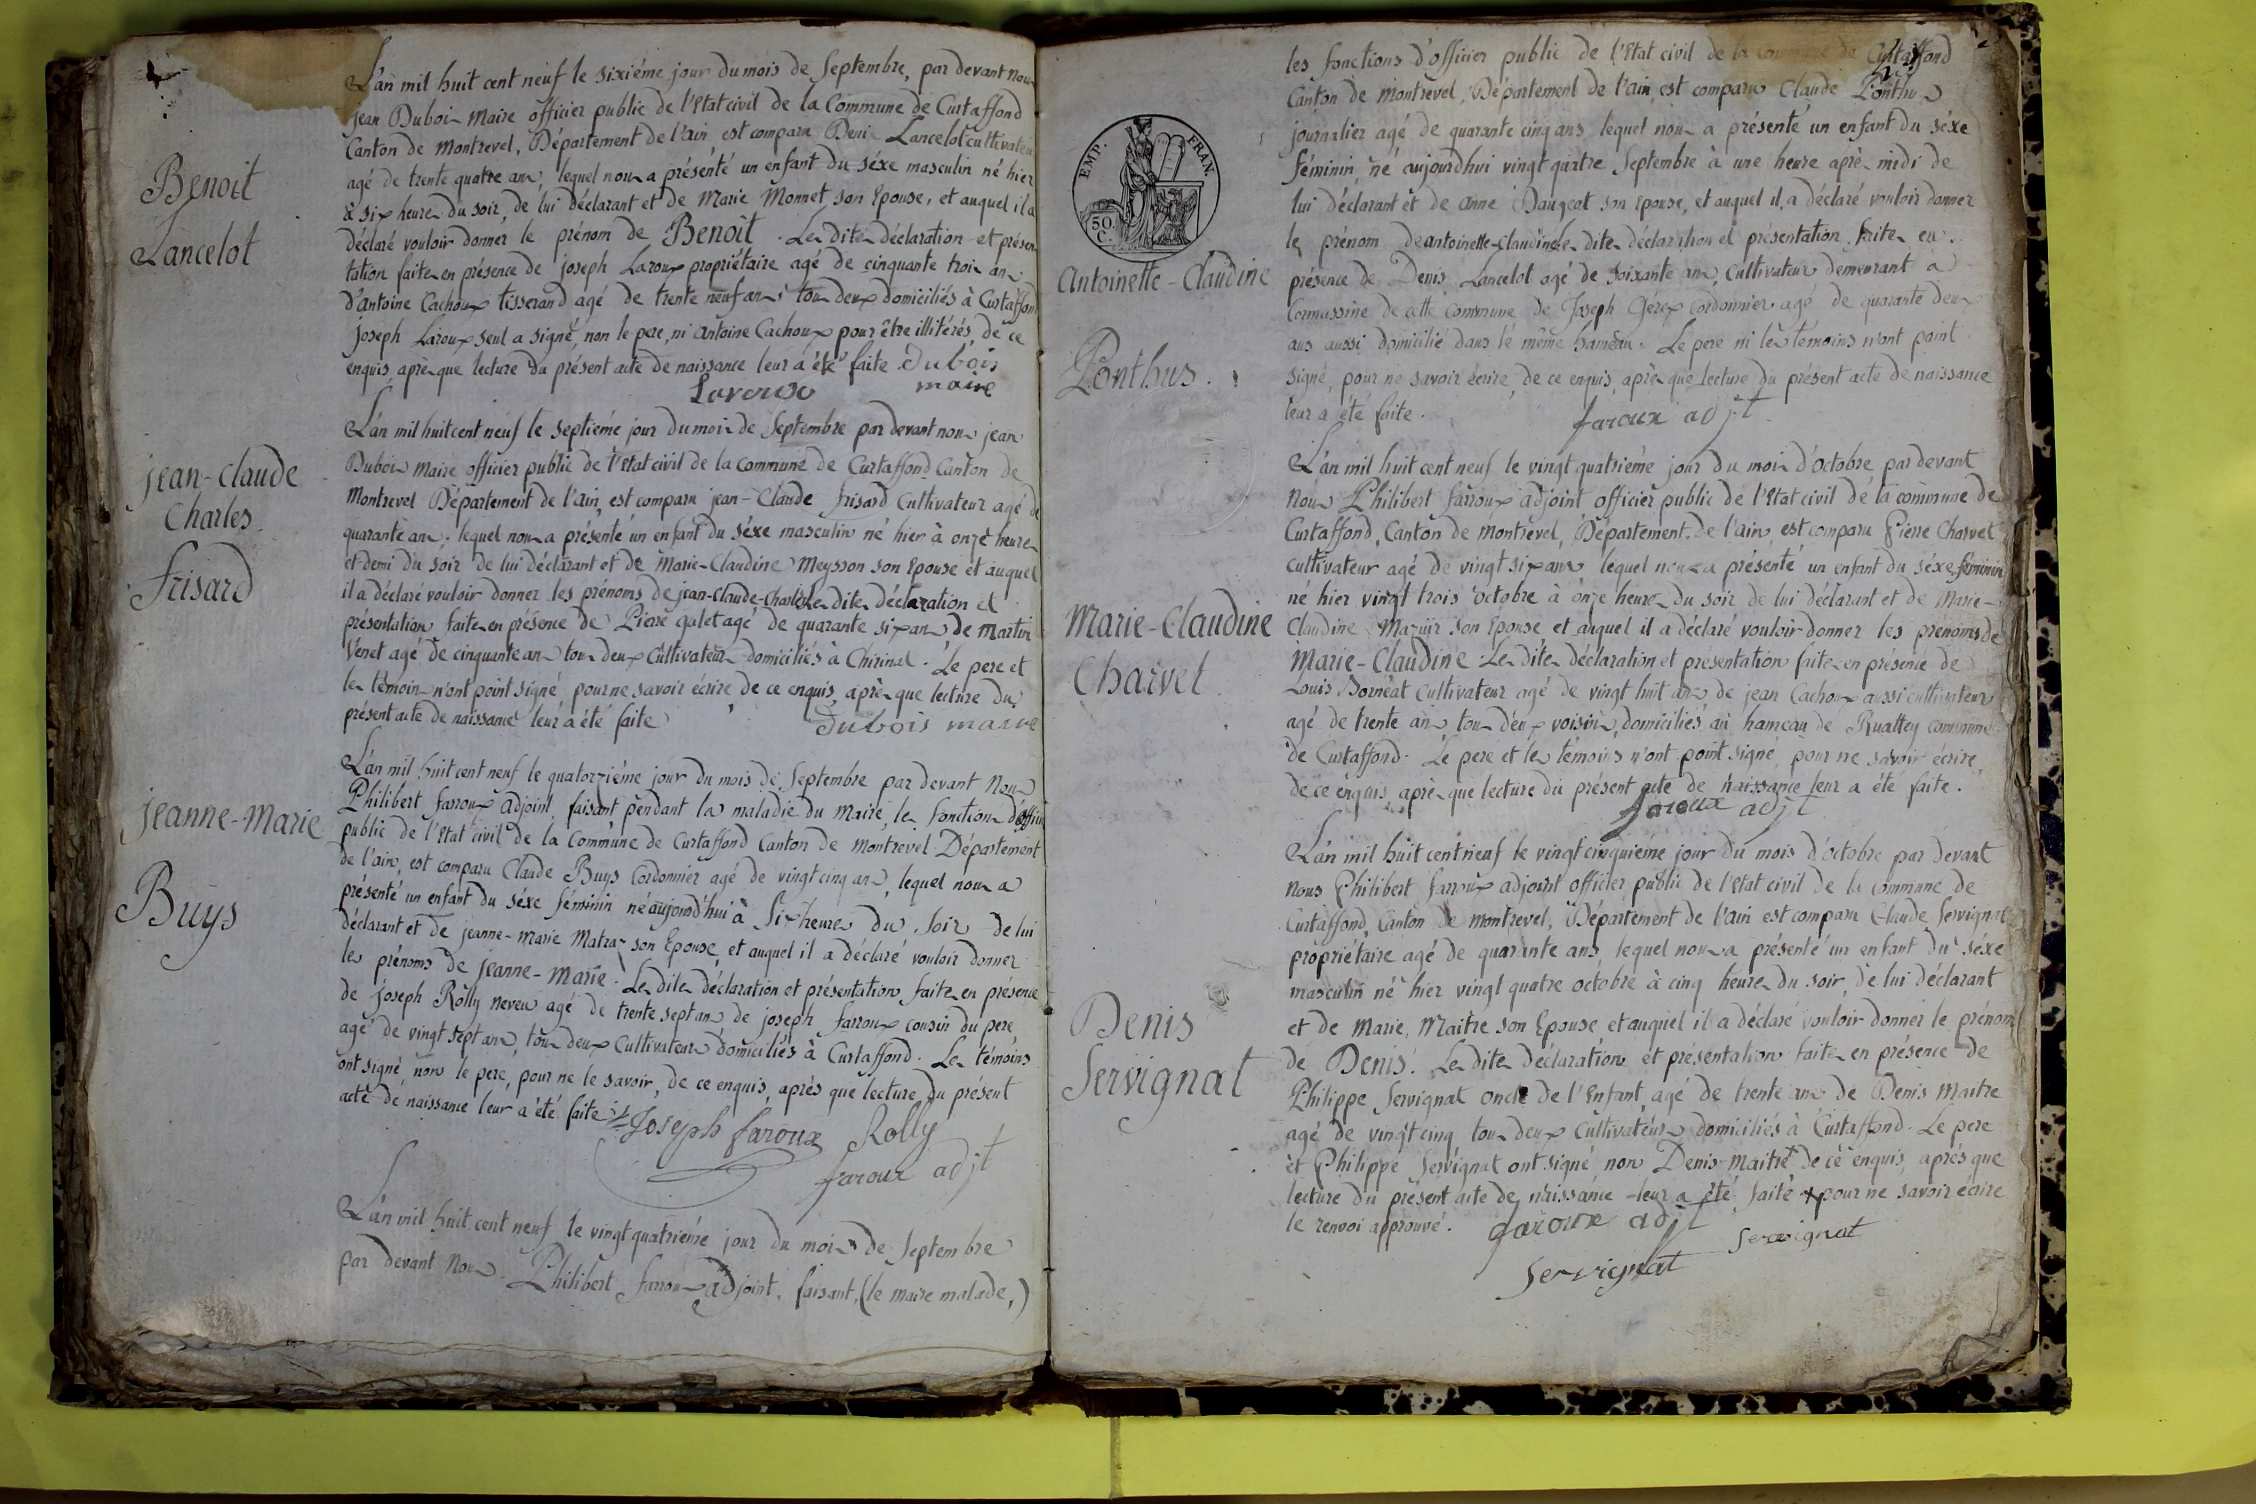 L'an mil huit cent neuf le sixiéme jour du mois de Septembre, par devant nous
jean Dubois maire officier public de l'Etat civil de la Commune de Curtaffond
Canton de Montrevel, Département de l'ain est comparu Denis Lancelot cultivateur
agé de trente quatre ans, lequel nous a présenté un enfant du séxe masculin né hier
à six heures du soir, de lui déclarant et de Marie Monnet son Epouse, et auquel il a
déclaré vouloir donner le prénom de Benoit. Les dites déclaration et présen
tation faites en présence de joseph Laroux propriétaire agé de cinquante trois ans
d'antoine Cachoux tisserand agé de trente neuf ans, tous deux domiciliés à Curtaffond
joseph Laroux seul a signé, non le pere, ni antoine Cachoux pour être illitérés, de ce
enquis, après que lecture du présent acte de naissance leur a été faite. Dubois
maire
Benoit
Lancelot
L'an mil huit cent neuf le septiéme jour du mois de Septembre par devant nous jean
Dubois maire officier public de l'Etat civil de la commune de Curtaffond Canton de
Montrevel Département de l'ain, est comparu jean-Claude frisard Cultivateur agé de
quarante ans, lequel nous a présenté un enfant du séxe masculin né hier à onze heures
et demi du soir de lui déclarant et de Marie-Claudine Meysson son Epouse et auquel
il a déclaré vouloir donner les prénoms de jean-Claude-Charles Les dites déclaration et
présentation faites en présence de Pierre galet agé de quarante six ans de Martin
Venet agé de cinquante ans tous deux Cultivateurs domiciliés à Chirinal. Le pere et
les témoins n'ont point signé pour ne savoir écrire de ce enquis, après que lecture du
présent acte de naissance leur a été faite
Dubois maire
jean-Claude
Charles
frisard
L'an mil huit cent neuf le quatorziéme jour du mois de Septembre par devant Nous
Philibert farroux adjoint, faisant pendant la maladie du Maire, les fonctions d'officier
public de l'Etat civil de la Commune de Curtaffond Canton de Montrevel Département
de l'ain, est comparu Claude Buys Cordonnier agé de vingt cinq ans, lequel nous a
présenté un enfant du séxe féminin né aujourd'hui à Six heures du Soir de lui
déclarant et de jeanne-Marie Matraz son Epouse, et auquel il a déclaré vouloir donner
les prénoms de jeanne-Marie. Les dites déclaration et présentation faites en présence
de joseph Rolly neveu agé de trente sept ans de joseph farroux cousin du pere,
agé de vingt sept ans, tous deux Cultivateurs domiciliés à Curtaffond. Les témoins
ont signé non le pere, pour ne le savoir, de ce enquis, après que lecture du présent
acte de naissance leur a été faite
Joseph faroux Rolly
faroux adjt
jeanne-Marie
Buys
L'an mil huit cent neuf le vingt quatriéme jour du mois de Septembre
par devant Nous Philibert farroux adjoint, faisant, (le maire malade,)
les fonctions d'officier public de l'Etat civil de la Commune de Curtaffond
Canton de Montrevel, Département de l'ain, est comparu Claude Ponthus
journalier agé de quarante cinq ans lequel nous a présenté un enfant du séxe
féminin né aujourdhui vingt quatre Septembre à une heure après midi de
lui déclarant et de anne Daugeat son Epouse, et auquel il a déclaré vouloir donner
le prénom de antoinette-Claudine Les dites déclaration et présentation faites en
présence de Denis Lancelot agé de soixante ans, Cultivateur demeurant a
Cormassine de cette Commune de Joseph Gerex cordonnier agé de quarante deux
ans aussi domicilié dans le même hameau. Le pere ni les témoins n'ont point
signé, pour ne savoir écrire, de ce enquis, après que lecture du présent acte de naissance
leur a été faite.
faroux adjt
EMP. FRAN.
50 C.
antoinette-Claudine
Ponthus.
L'an mil huit cent neuf le vingt quatriéme jour du mois d'octobre par devant
Nous Philibert farroux adjoint officier public de l'Etat civil de la commune de
Curtaffond, Canton de Montrevel, Département de l'ain, est comparu Pierre Charvet
Cultivateur agé de vingt six ans lequel nous a présenté un enfant du séxe féminin
né hier vingt trois octobre à onze heures du soir de lui déclarant et de Marie-
Claudine Mazuir son Epouse et auquel il a déclaré vouloir donner les prénoms de
Marie-Claudine. Les dites déclaration et présentation faites en présence de
Louis Bornéat Cultivateur agé de vingt huit ans de jean Cachoux aussi cultivateur
agé de trente ans, tous deux voisins, domiciliés au hameau de Ruattey commune
de Curtaffond. Le pere et les témoins n'ont point signé, pour ne savoir écrire,
de ce enquis après que lecture du présent acte de naissance leur a été faite.
faroux adjt
Marie-Claudine
Charvet
L'an mil huit cent neuf le vingt cinquiéme jour du mois d'octobre par devant
nous Philibert farroux adjoint officier public de l'Etat civil de la commune de
Curtaffond, Canton de Montrevel, Département de l'ain est comparu Claude Servignat
propriétaire agé de quarante ans, lequel nous a présenté un enfant du séxe
masculin né hier vingt quatre octobre à cinq heures du soir, de lui déclarant
et de Marie Maitre son Epouse et auquel il a déclaré vouloir donner le prénom
de Denis. Les dites déclaration et présentation faites en présence de
Philippe Servignat oncle de l'Enfant, agé de trente ans de Denis Maitre
agé de vingt cinq tous deux Cultivateurs domiciliés à Curtaffond. Le pere
et Philippe Servignat ont signé non Denis Maitre de ce enquis, après que
lecture du présent acte de naissance leur a été faite + pour ne savoir écrire
le renvoi approuvé.
faroux adjt
Servignat
Servignat
Denis
Servignat